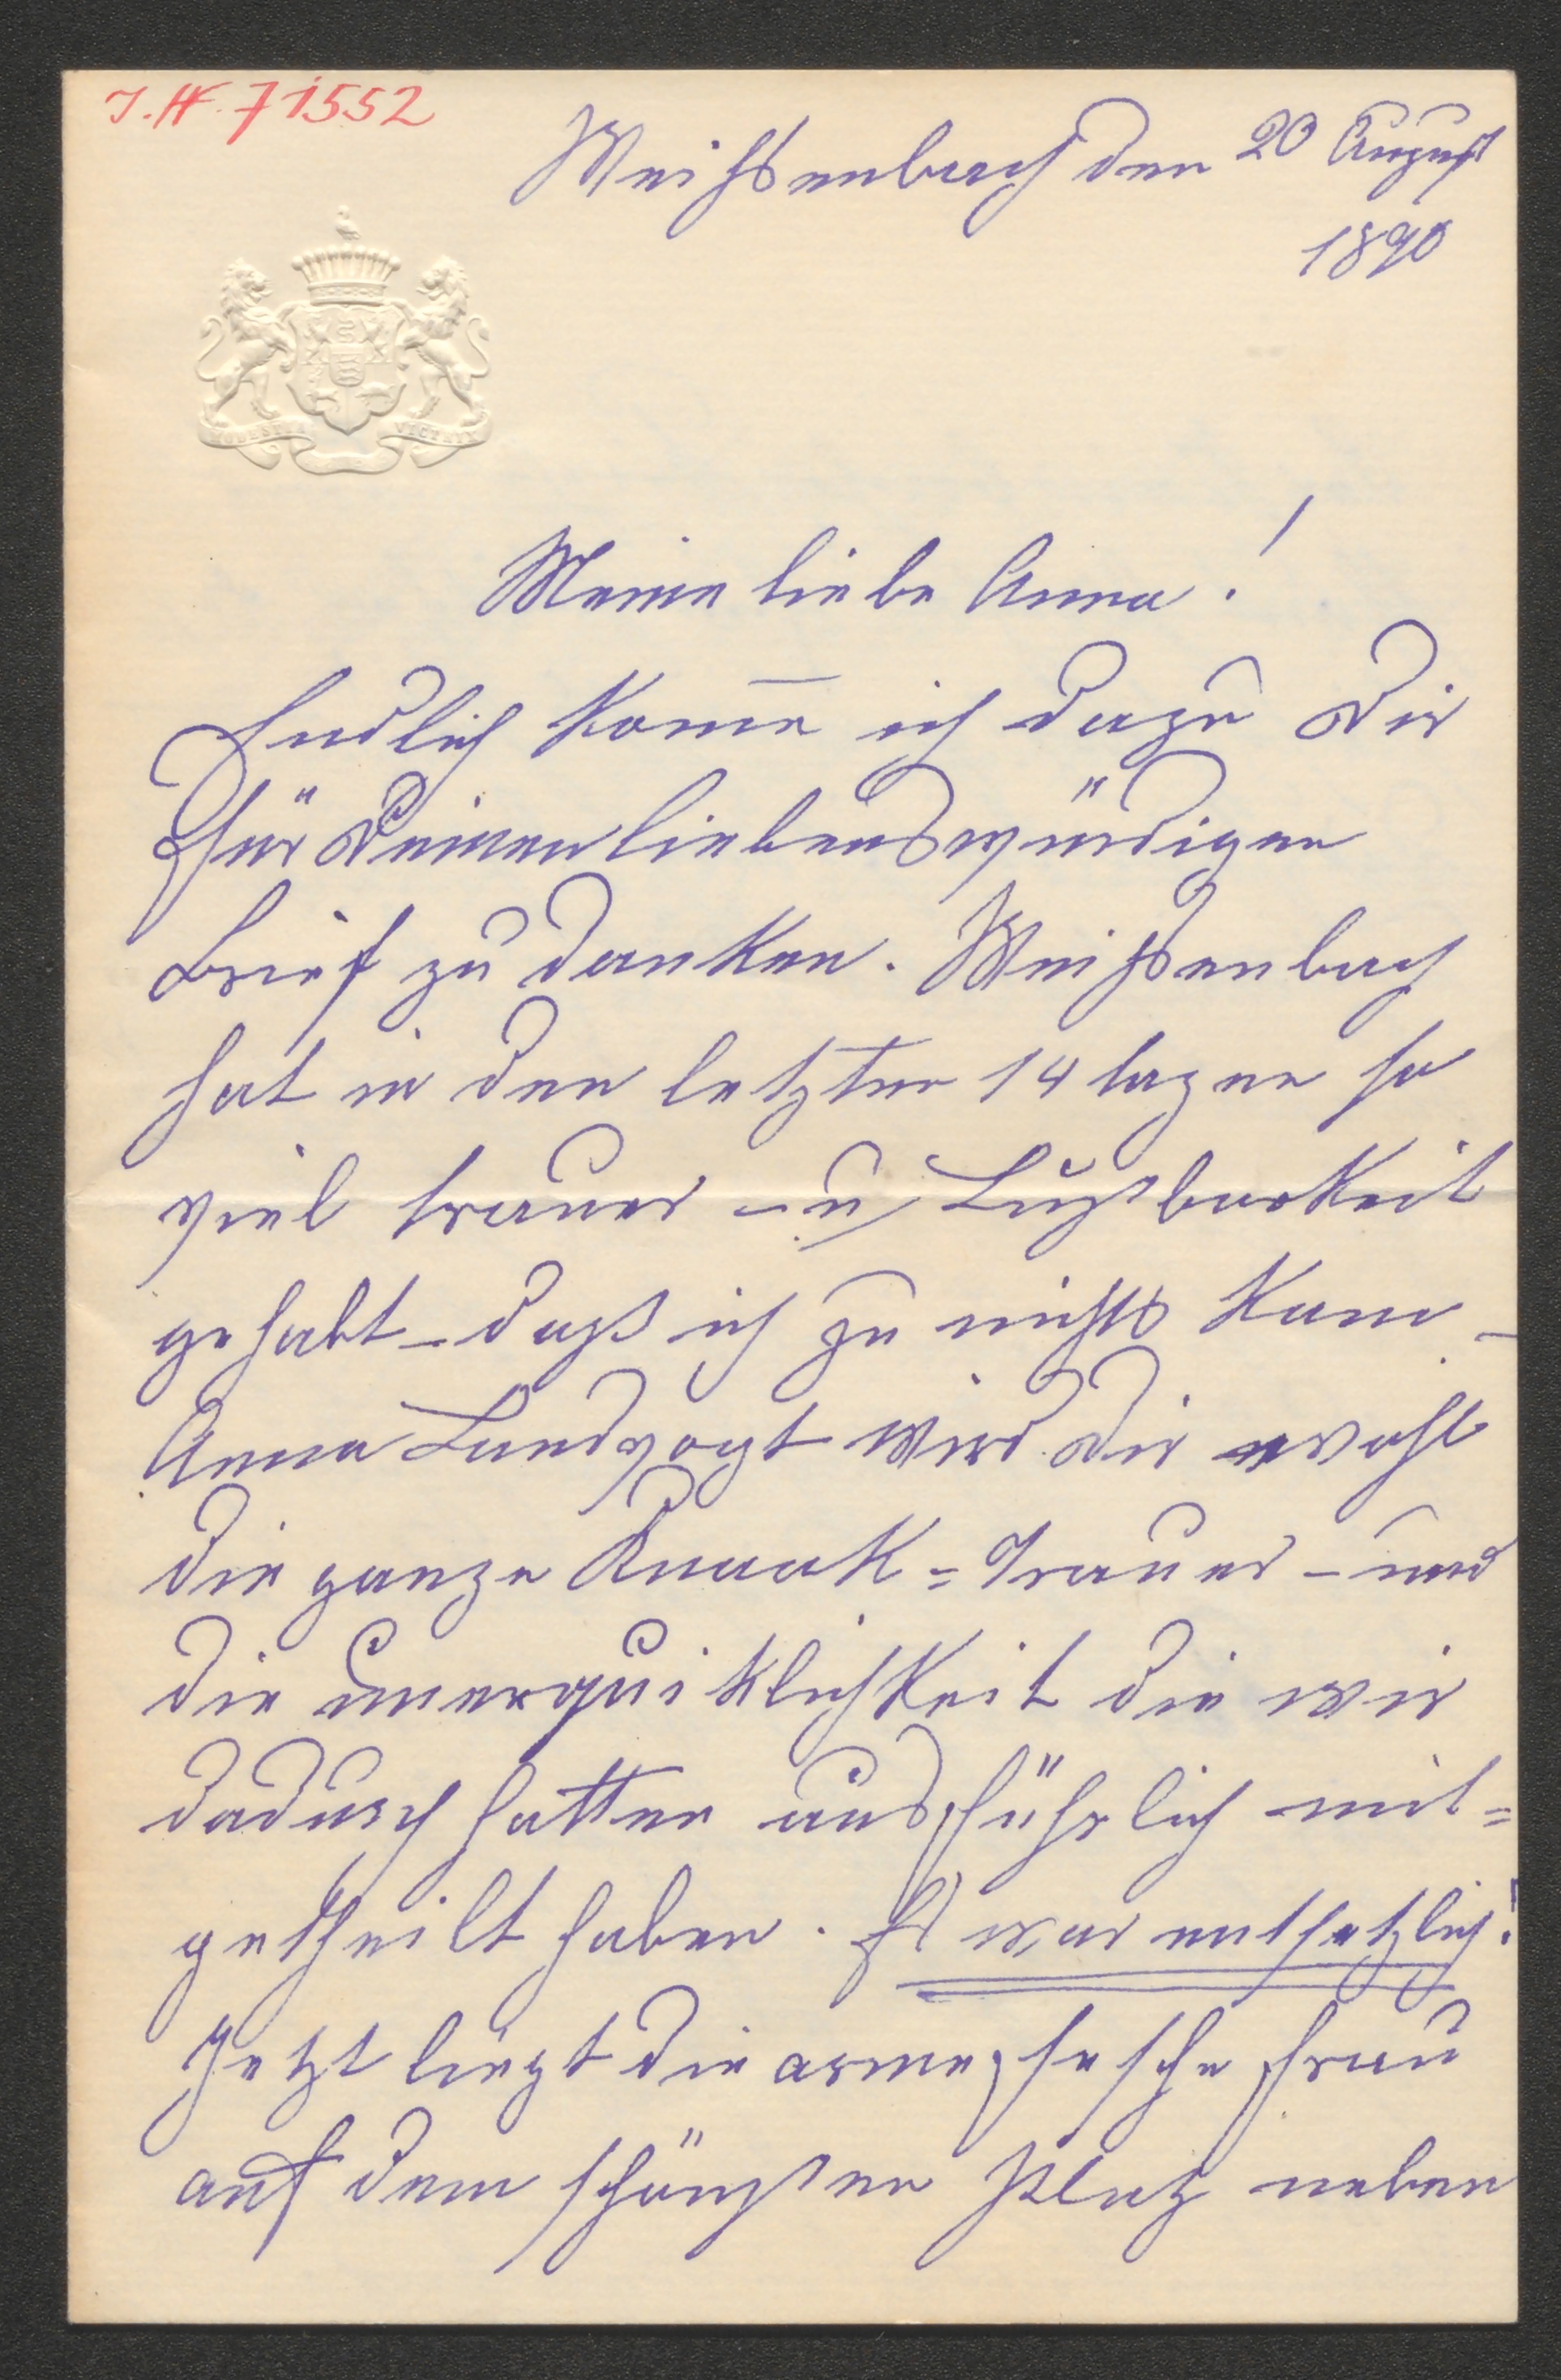 J.N. 71552
Weißenbach den 20 August
1890
MODESTIA VICTRIX
Meine liebe Anna!
Endlich kom̅e ich dazu Dir
für Deinen liebenswürdigen
Brief zu danken. Weißenbach
hat in den letzten 14 tagen so
viel trauer - u Lustbarkeit
gehabt - daß ich zu nichts kam -
Anna Landvogt wird Dir wohl
die ganze Knaak=Trauer - und
die unerquiklichkeit die wir
dadurch hatten ausführlich mit=
getheilt haben. Es war entsetzlich!
Jetzt liegt die arme, fesche Frau
auf dem schönsten Platz neben